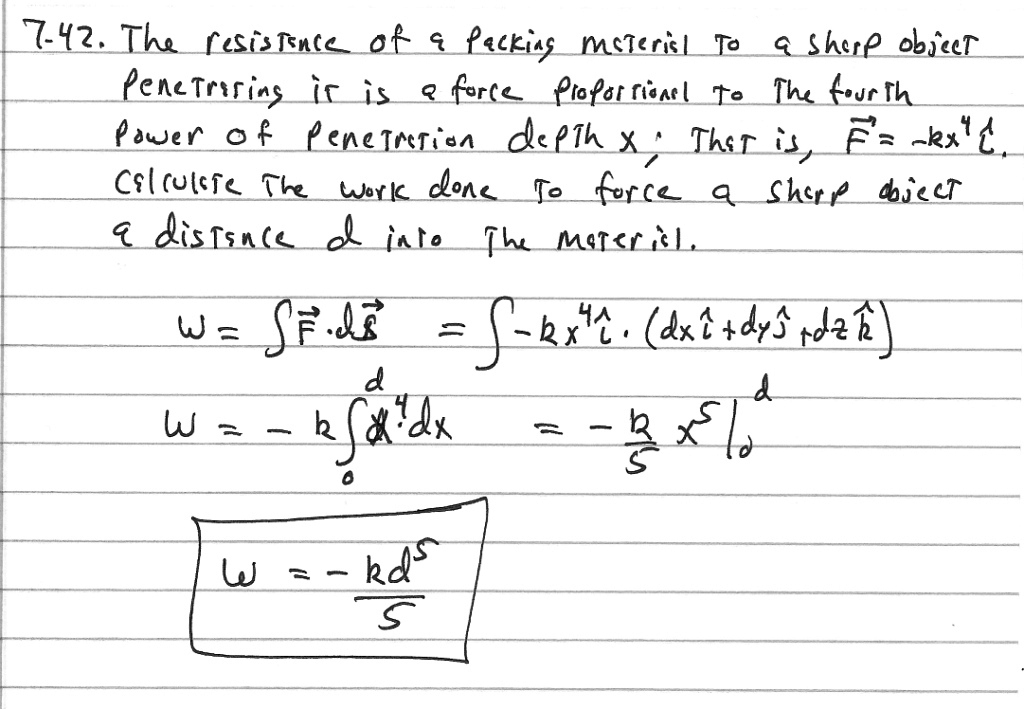 7-42. The resistance of a packing material to a sharp object
penetrating it is a force proportional to the fourth
power of penetration depth x; That is, F⃗ = -kx⁴ î.
Calculate the work done to force a sharp object
a distance d into the material.
W = ∫F⃗·ds⃗ = ∫-kx⁴î·(dxî+dyĵ+dzk̂)
W = -k∫₀ᵈx⁴dx = -k/5 x⁵|₀ᵈ
W = -kd⁵/5